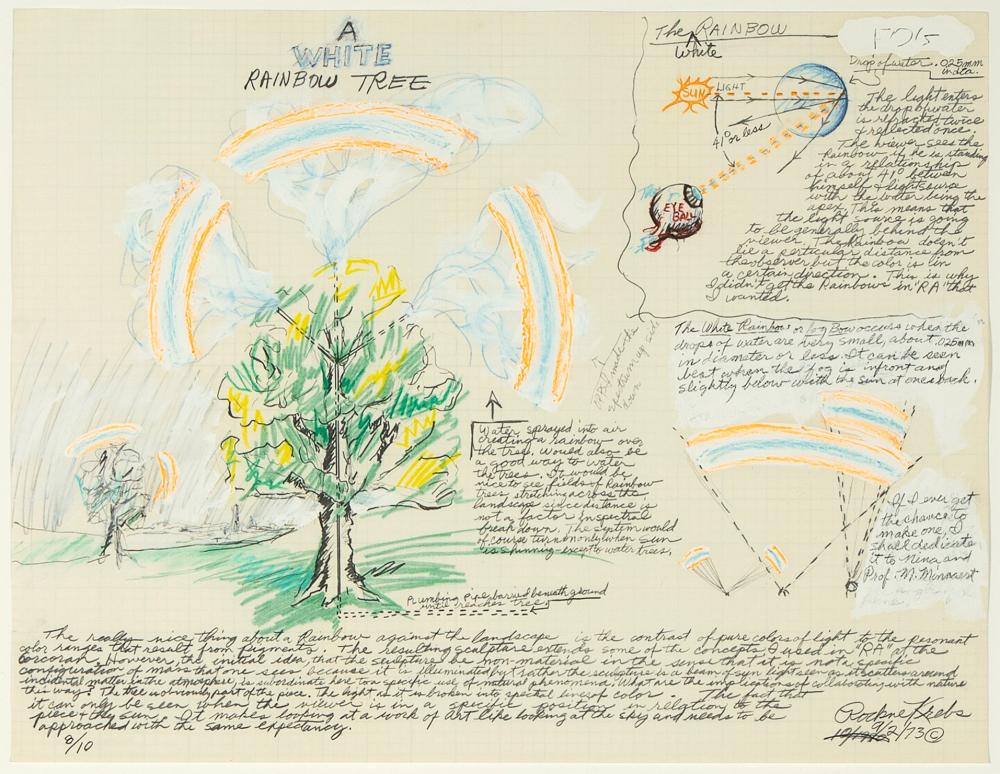 A
WHITE
RAINBOW TREE
The RAINBOW
White
FOG
Drop of water .025mm
in dia.
SUN
LIGHT
41° or less
EYE
BALL
The light enters
the drop of water
is refracted twice
& reflected once.
The viewer sees the
Rainbow if he is standing
in a relationship
of about 41° between
himself & light source
with the water being the
apex. This means that
the light source is going
to be generally behind the
viewer. The Rainbow doesn't
lie a particular distance from
the observer but the color is in
a certain direction. This is why
I didn't get the Rainbows in "RA" that
I wanted.
The White Rainbow or Fog Bow occurs when the
drops of water are very small, about .025mm
in diameter or less. It can be seen
best when the fog is in front and
slightly below with the Sun at ones back.
If I ever get
the chance to
make one, I
shall dedicate
it to Nina and
Prof. M. Minnaert
Water sprayed into air
creating a rainbow over
the tree. Would also be
a good way to water
the trees. It would be
nice to see fields of Rainbow
trees stretching across the
landscape since distance is
not a factor in spectral
break down. The system would
of course turn on only when sun
is shinning - except to water trees.
Plumbing Pipe buried beneath ground
until reaches tree.
The really nice thing about a Rainbow against the landscape is the contrast of pure colors of light to the
color ranges that result from pigments. The resulting sculpture extends some of the concepts I used in "RA" at the
Corcoran. However, the initial idea, that the sculpture be non-material in the sense that it is not a specific
configuration of mass that one sees because it is illuminated by light rather the sculpture is a beam of sun light seen as it scatters around
incidental matter in the atmosphere, is subordinate here to a specific use of natural phenomena. What are the implications of collaborating with nature
this way? The tree is obviously part of the piece. The light as it is broken into spectral lines of color The fact that
it can only be seen when the viewer is in a specific position in relation to the
piece & the sun. It makes looking at a work of art like looking at the sky and needs to be
approached with the same expectancy.
8/10
Rockne Krebs
9/2/73 ©